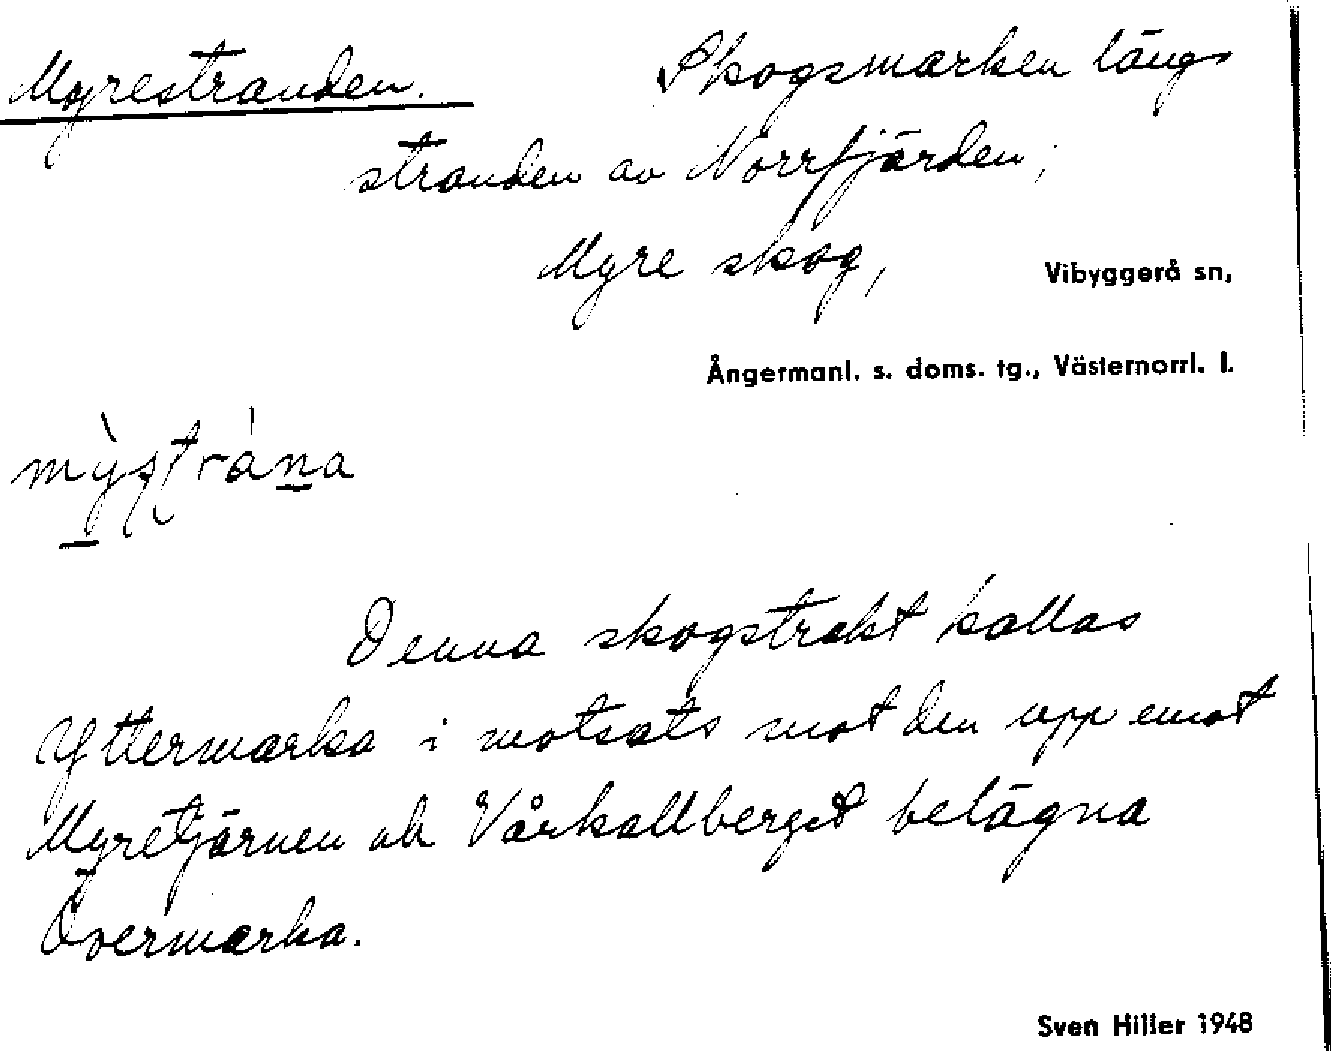 Myrestranden. Skogsmarken längs
stranden av Norrfjärden,
Myre skog, Vibyggerå sn,
Ångermanl. s. doms. tg., Västernorrl. l.
Denna skogstrakt kallas
Yttermarka i motsats mot den upp emot
Myretjärnen och Vårkallberget belägna
Övermarka.
Sven Hiller 1948